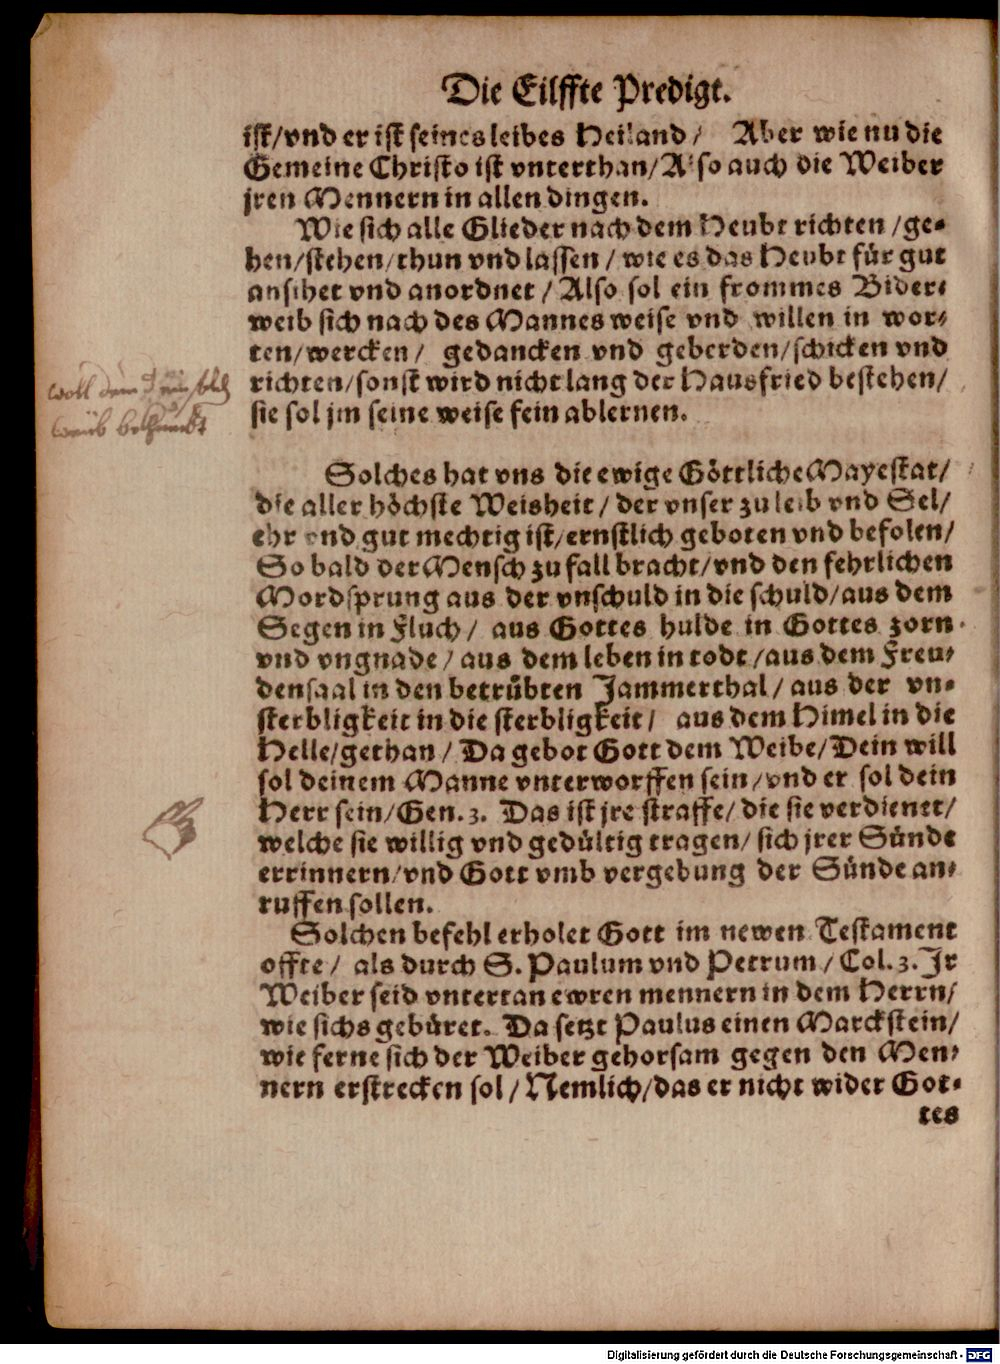 Die Eilffte Predigt.
ist/vnd er ist seines leibes Heiland/ Aber wie nu die
Gemeine Christo ist vnterthan/Also auch die Weiber
jren Mennern in allen dingen.
Wie sich alle Glieder nach dem Heubt richten/ge-
hen/stehen/thun vnd lassen/wie es das Heubt für gut
ansihet vnd anordnet/Also sol ein frommes Bider-
weib sich nach des Mannes weise vnd willen in wor-
ten/wercken/ gedancken vnd geberden/schicken vnd
richten/sonst wird nicht lang der Hausfried bestehen/
sie sol jm seine weise fein ablernen.
woll dem
Solches hat vns die ewige Göttliche Mayestat/
die aller höchste Weisheit/der vnser zu leib vnd Sel/
ehr vnd gut mechtig ist/ernstlich geboten vnd befolen/
So bald der Mensch zu fall bracht/vnd den fehrlichen
Mordsprung aus der vnschuld in die schuld/aus dem
Segen in Fluch/ aus Gottes hulde in Gottes zorn
vnd vngnade/aus dem leben in todt/aus dem Freu-
densaal in den betrübten Jammerthal/aus der vn-
sterbligkeit in die sterbligkeit/ aus dem Himel in die
Helle/gethan/Da gebot Gott dem Weibe/Dein will
sol deinem Manne vnterworffen sein/vnd er sol dein
Herr sein/Gen.3. Das ist jre straffe/die sie verdienet/
welche sie willig vnd gedültig tragen/sich jrer Sünde
errinnern/vnd Gott vmb vergebung der Sünde an-
ruffen sollen.
Solchen befehl erholet Gott im newen Testament
offte/ als durch S. Paulum vnd Petrum/Col.3.Jr
Weiber seid vntertan ewren mennern in dem Herrn/
wie sichs gebüret. Da setzt Paulus einen Marckstein/
wie ferne sich der Weiber gehorsam gegen den Men-
nern erstrecken sol/Nemlich/das er nicht wider Got-
tes
Digitalisierung gefördert durch die Deutsche Forschungsgemeinschaft - DFG